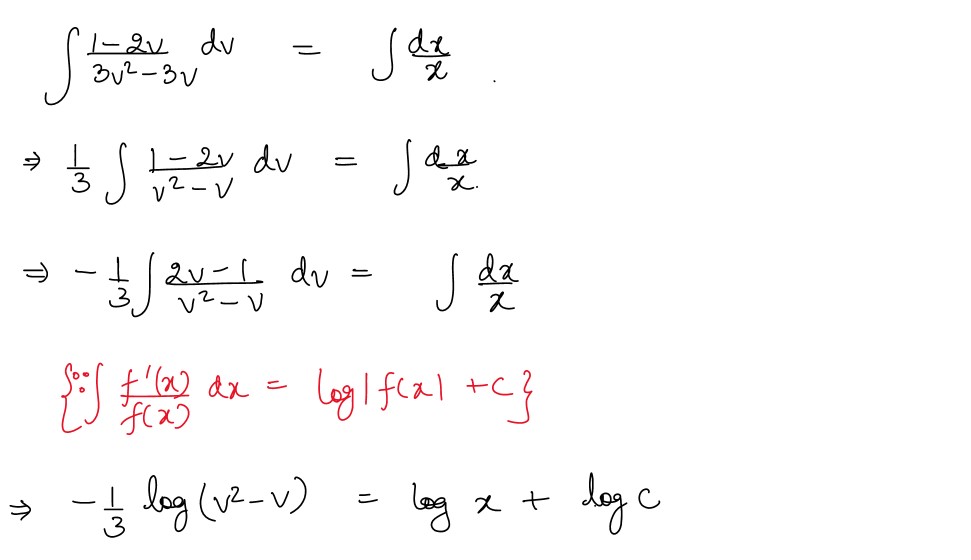 ∫ (1-2v)/(3v²-3v) dv = ∫ dx/x .
⇒ 1/3 ∫ (1-2v)/(v²-v) dv = ∫ dx/x.
⇒ -1/3 ∫ (2v-1)/(v²-v) dv = ∫ dx/x
{∵ ∫ f'(x)/f(x) dx = log|f(x| +c}
⇒ -1/3 log(v²-v) = log x + log c